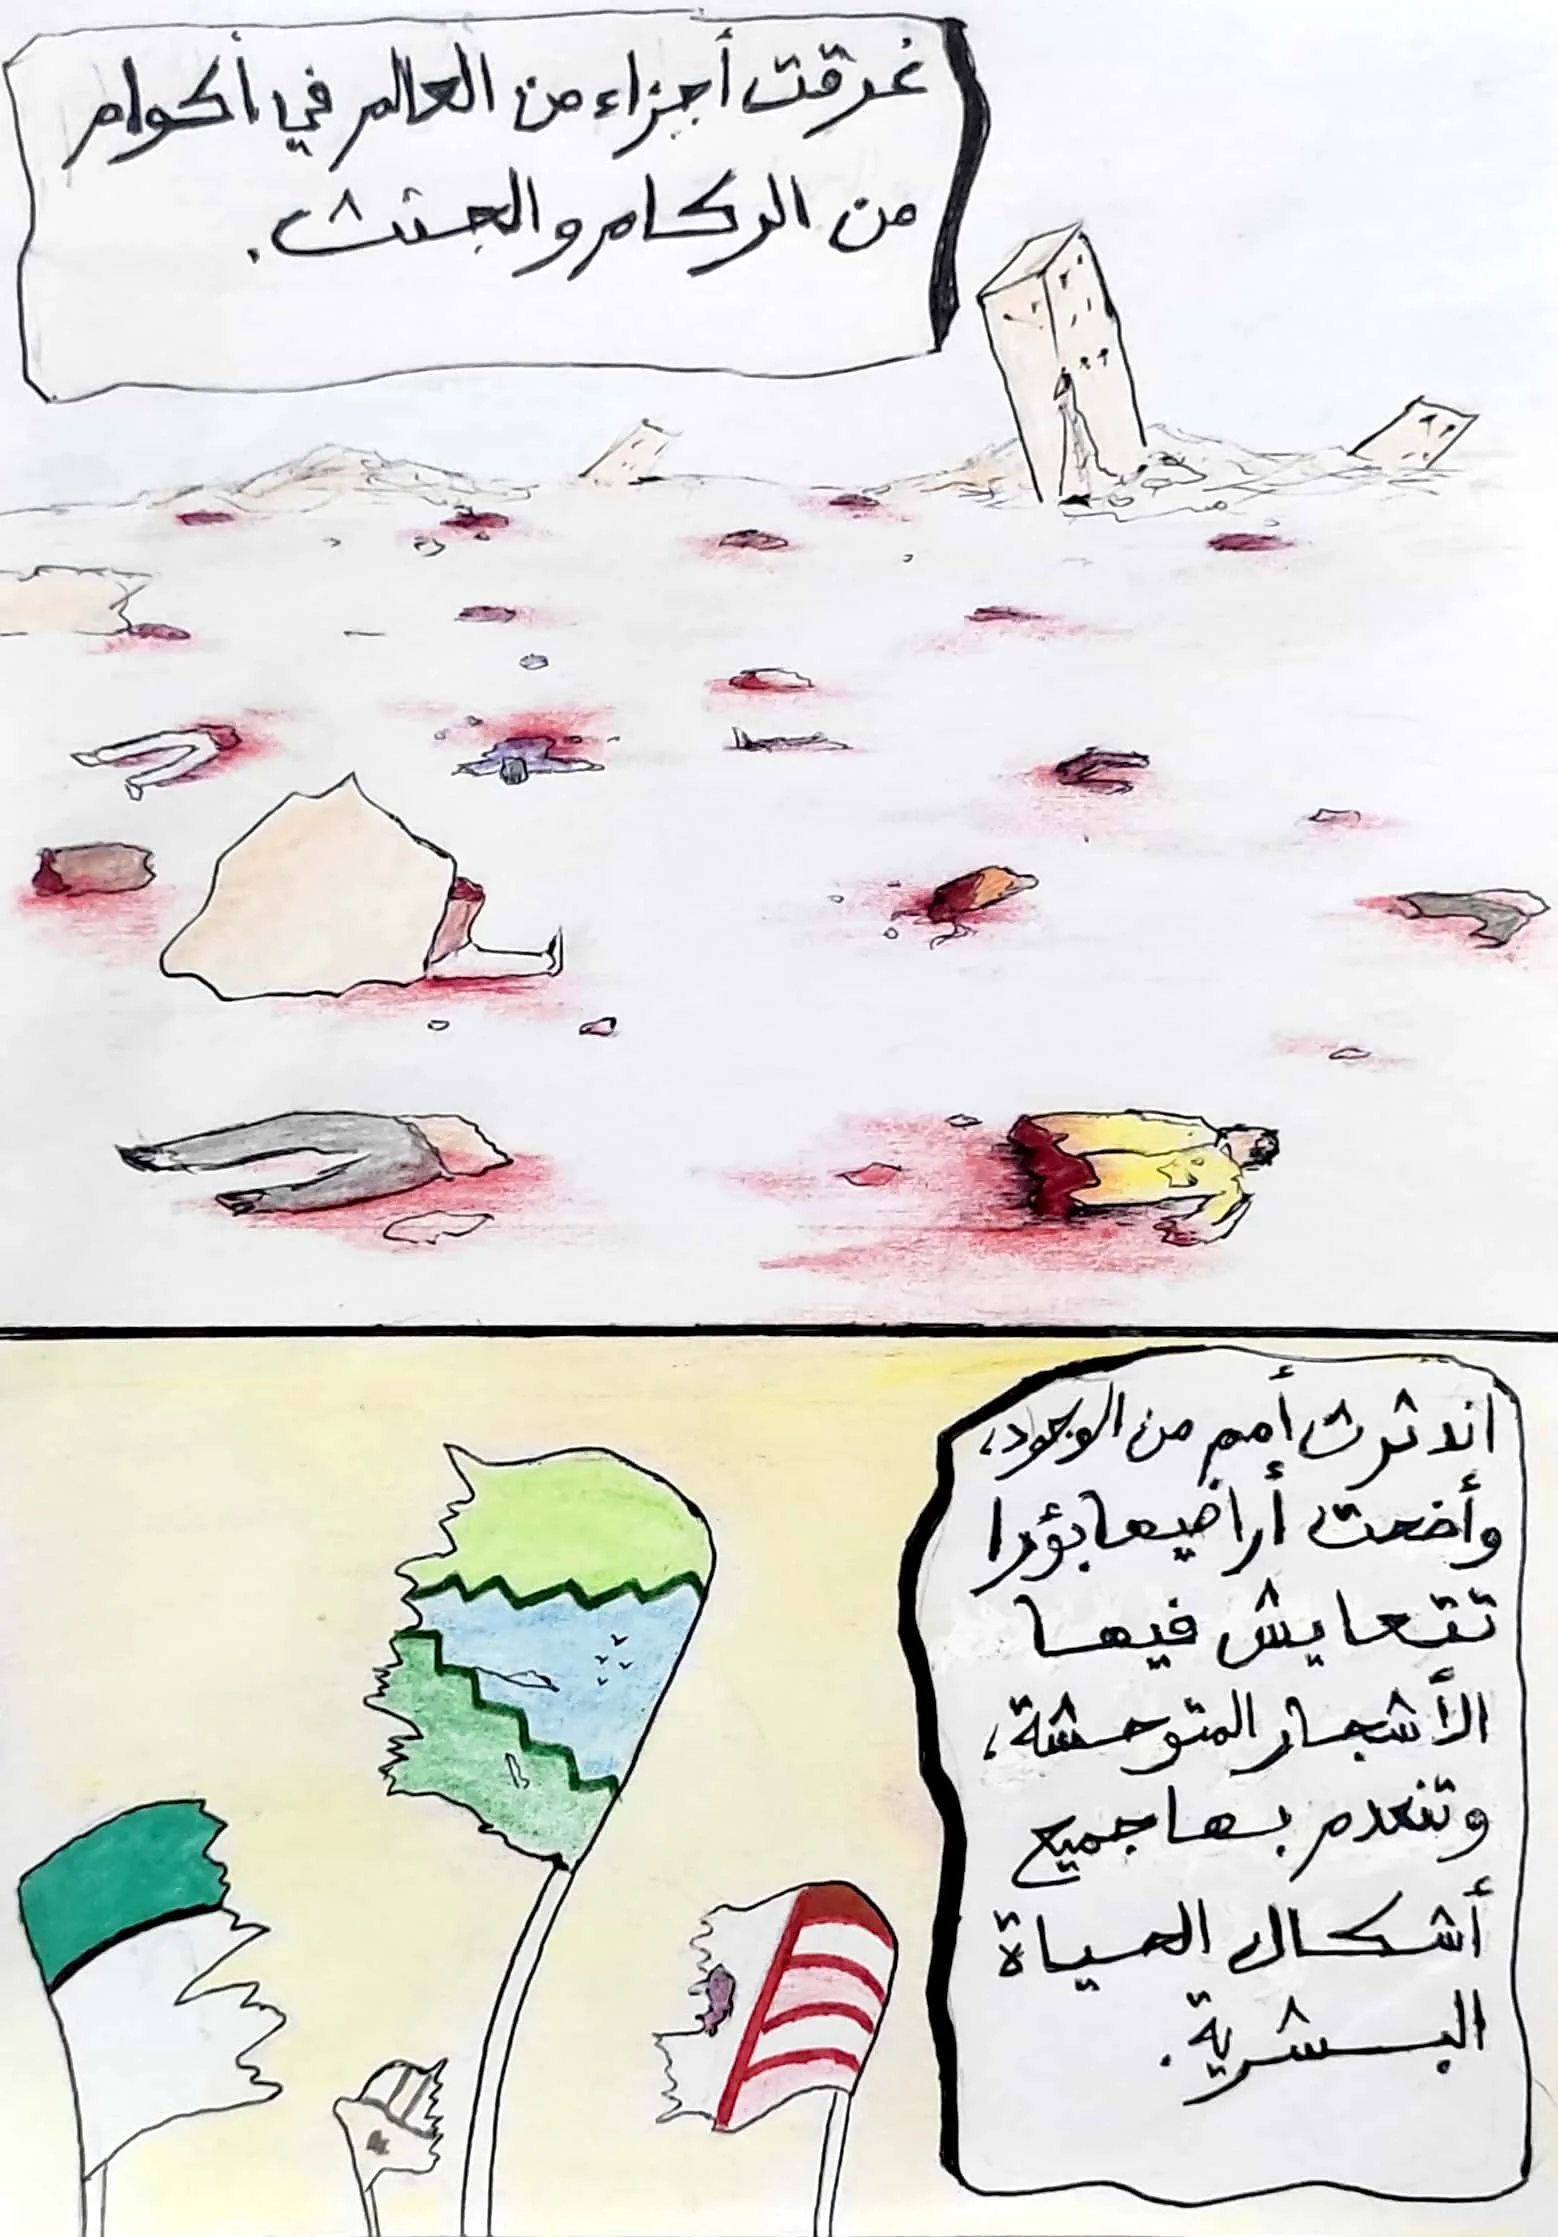 غرقت أجزاء من العالم في أكوام
من الركام والجثث.
اندثرت أمم من الوجود،
وأضحت أراضيها بؤرا
تتعايش فيها
الأشجار المتوحشة،
وتنعدم بها جميع
أشكال الحياة
البشرية.